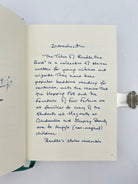 Introduction
"The Tales of Beedle the
Bard" is a collection of stories
written for young witches and
wizards. They have been
popular bedtime reading for
centuries, with the result that
the Hopping Pot and the
Fountain of Fair Fortune are
as familiar to many of the
students at Hogwarts as
Cinderella and Sleeping Beauty
are to Muggle (non-magical)
children.
Beedle's stories resemble